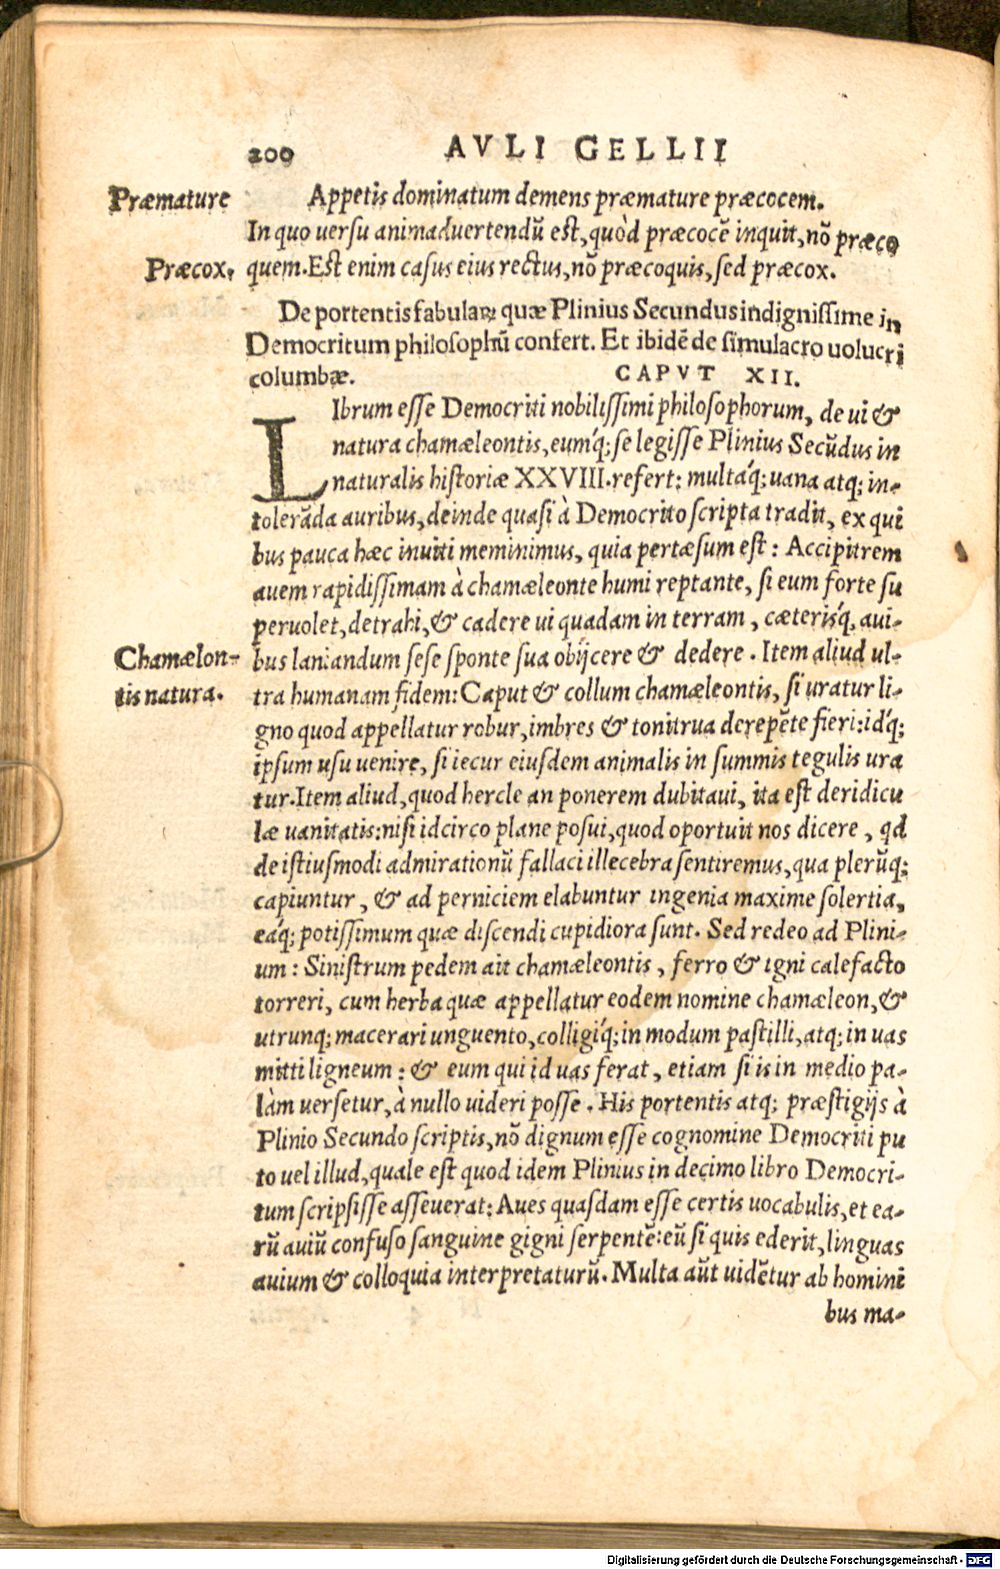 200 AVLI GELLII
Præmature Appetis dominatum demens præmature præcocem.
In quo uersu animaduertendũ est, quòd præcocẽ inquit, nõ præco
Præcox. quem. Est enim casus eius rectus, nõ præcoquis, sed præcox.
De portentis fabulaꝝ quæ Plinius Secundus indignissime in
Democritum philosophũ confert. Et ibidẽ de simulacro uolucri
columbæ. CAPVT XII.
LIbrum esse Democriti nobilissimi philosophorum, de ui &
natura chamæleontis, eumq́; se legisse Plinius Secũdus in
naturalis historiæ XXVIII. refert: multaq́; uana atq; in-
tolerãda auribus, deinde quasi à Democrito scripta tradit, ex qui
bus pauca hæc inuiti meminimus, quia pertæsum est: Accipitrem
auem rapidissimam à chamæleonte humi reptante, si eum forte su
peruolet, detrahi, & cadere ui quadam in terram, cæterisq́, aui-
Chamælon- bus laniandum sese sponte sua obijcere & dedere. Item aliud ul-
tis natura. tra humanam fidem: Caput & collum chamæleontis, si uratur li-
gno quod appellatur robur, imbres & tonitrua derepẽte fieri: idq́;
ipsum usu uenire, si iecur eiusdem animalis in summis tegulis ura
tur. Item aliud, quod hercle an ponerem dubitaui, ita est deridicu
læ uanitatis: nisi idcirco plane posui, quod oportuit nos dicere, qd
de istiusmodi admirationũ fallaci illecebra sentiremus, qua plerũq;
capiuntur, & ad perniciem elabuntur ingenia maxime solertia,
eaq́; potissimum quæ discendi cupidiora sunt. Sed redeo ad Plini-
um: Sinistrum pedem ait chamæleontis, ferro & igni calefacto
torreri, cum herba quæ appellatur eodem nomine chamæleon, &
utrunq; macerari unguento, colligiq́; in modum pastilli, atq; in uas
mitti ligneum: & eum qui id uas ferat, etiam si is in medio pa-
làm uersetur, à nullo uideri posse. His portentis atq; præstigijs à
Plinio Secundo scriptis, nõ dignum esse cognomine Democriti pu
to uel illud, quale est quod idem Plinius in decimo libro Democri-
tum scripsisse asseuerat: Aues quasdam esse certis uocabulis, et ea-
rũ auiũ confuso sanguine gigni serpentẽ: eũ si quis ederit, linguas
auium & colloquia interpretaturũ. Multa aũt uidẽtur ab homini
bus ma-
Digitalisierung gefördert durch die Deutsche Forschungsgemeinschaft - DFG